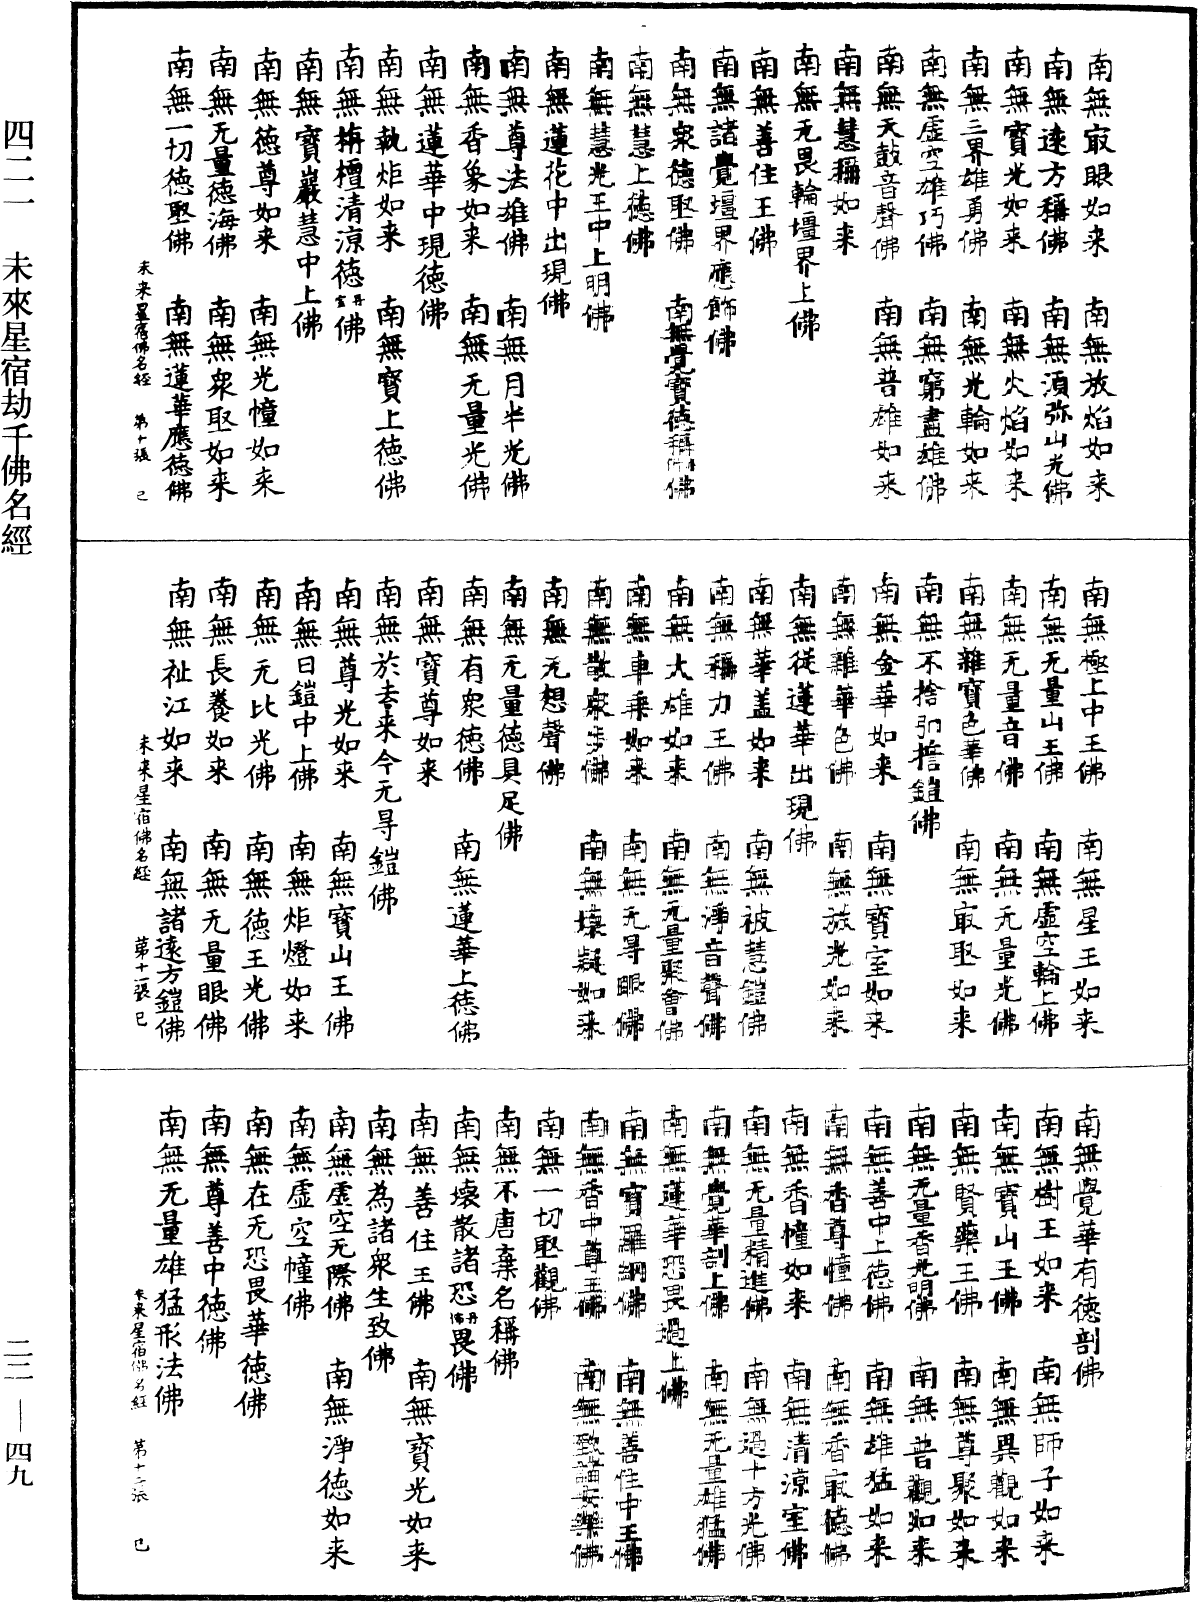 南無㝡眼如来　南無放焰如来
南無遠方稱佛　南無湏弥山光佛
南無寶光如来　南無火焰如来
南無三界雄勇佛　南無光輪如来
南無虛空雄巧佛　南無窮盡雄佛
南無天鼓音聲佛　南無普雄如来
南無慧稱如来
南無无畏輪壃界上佛
南無善住王佛
南無諸覺壃界應飾佛
南無衆德㝡佛　南無覺寶德稱佛
南無慧上德佛
南無慧光王中上明佛
南無蓮花中出現佛
南無尊法雄佛　南無月半光佛
南無香象如来　南無无量光佛
南無蓮華中現德佛
南無執炬如来　南無寶上德佛
南無栴檀清涼德佛
南無寶巖慧中上佛
南無德尊如来　南無光幢如来
南無无量德海佛　南無衆㝡如来
南無一切德㝡佛　南無蓮華應德佛
未来星宿佛名經　第十張　己
南無極上中王佛　南無星王如来
南無无量山王佛　南無虛空輪上佛
南無无量音佛　南無无量光佛
南無雜寶色華佛　南無㝡㝡如来
南無不捨弘擔鎧佛
南無金華如来　南無寶室如来
南無雜華色佛　南無放光如来
南無從蓮華出現佛
南無華盖如来　南無被慧鎧佛
南無稱力王佛　南無淨音聲佛
南無大雄如来　南無无量聚會佛
南無車乗如来　南無无㝵眼佛
南無散衆步佛　南無壞疑如来
南無无想聲佛
南無无量德具足佛
南無有衆德佛　南無蓮華上德佛
南無寶尊如来
南無於去来今无㝵鎧佛
南無尊光如来　南無寶山王佛
南無日鎧中上佛　南無炬燈如来
南無无比光佛　南無德王光佛
南無長養如来　南無无量眼佛
南無祉江如来　南無諸遠方鎧佛
未来星宿佛名經　第十一張　己
南無覺華有德剖佛
南無樹王如来　南無師子如来
南無寶山王佛　南無異觀如来
南無賢藥王佛　南無尊聚如来
南無无量香光明佛　南無普觀如来
南無善中上德佛　南無雄猛如来
南無香尊幢佛　南無香㝡德佛
南無香幢如来　南無清涼室佛
南無无量精進佛　南無過十方光佛
南無覺華剖上佛　南無无量雄猛佛
南無蓮華恐畏過上佛
南無寶羅網佛　南無善住中王佛
南無香中尊王佛　南無致諸安樂佛
南無一切㝡觀佛
南無不唐棄名稱佛
南無壞散諸恐畏佛
南無善住王佛　南無寶光如来
南無為諸衆生致佛
南無虛空无際佛　南無淨德如来
南無虛空幢佛
南無在无恐畏華德佛
南無尊善中德佛
南無无量雄猛形法佛
未来星宿佛名經　第十二張　己
四二二　未來星宿劫千佛名經
二二—四九